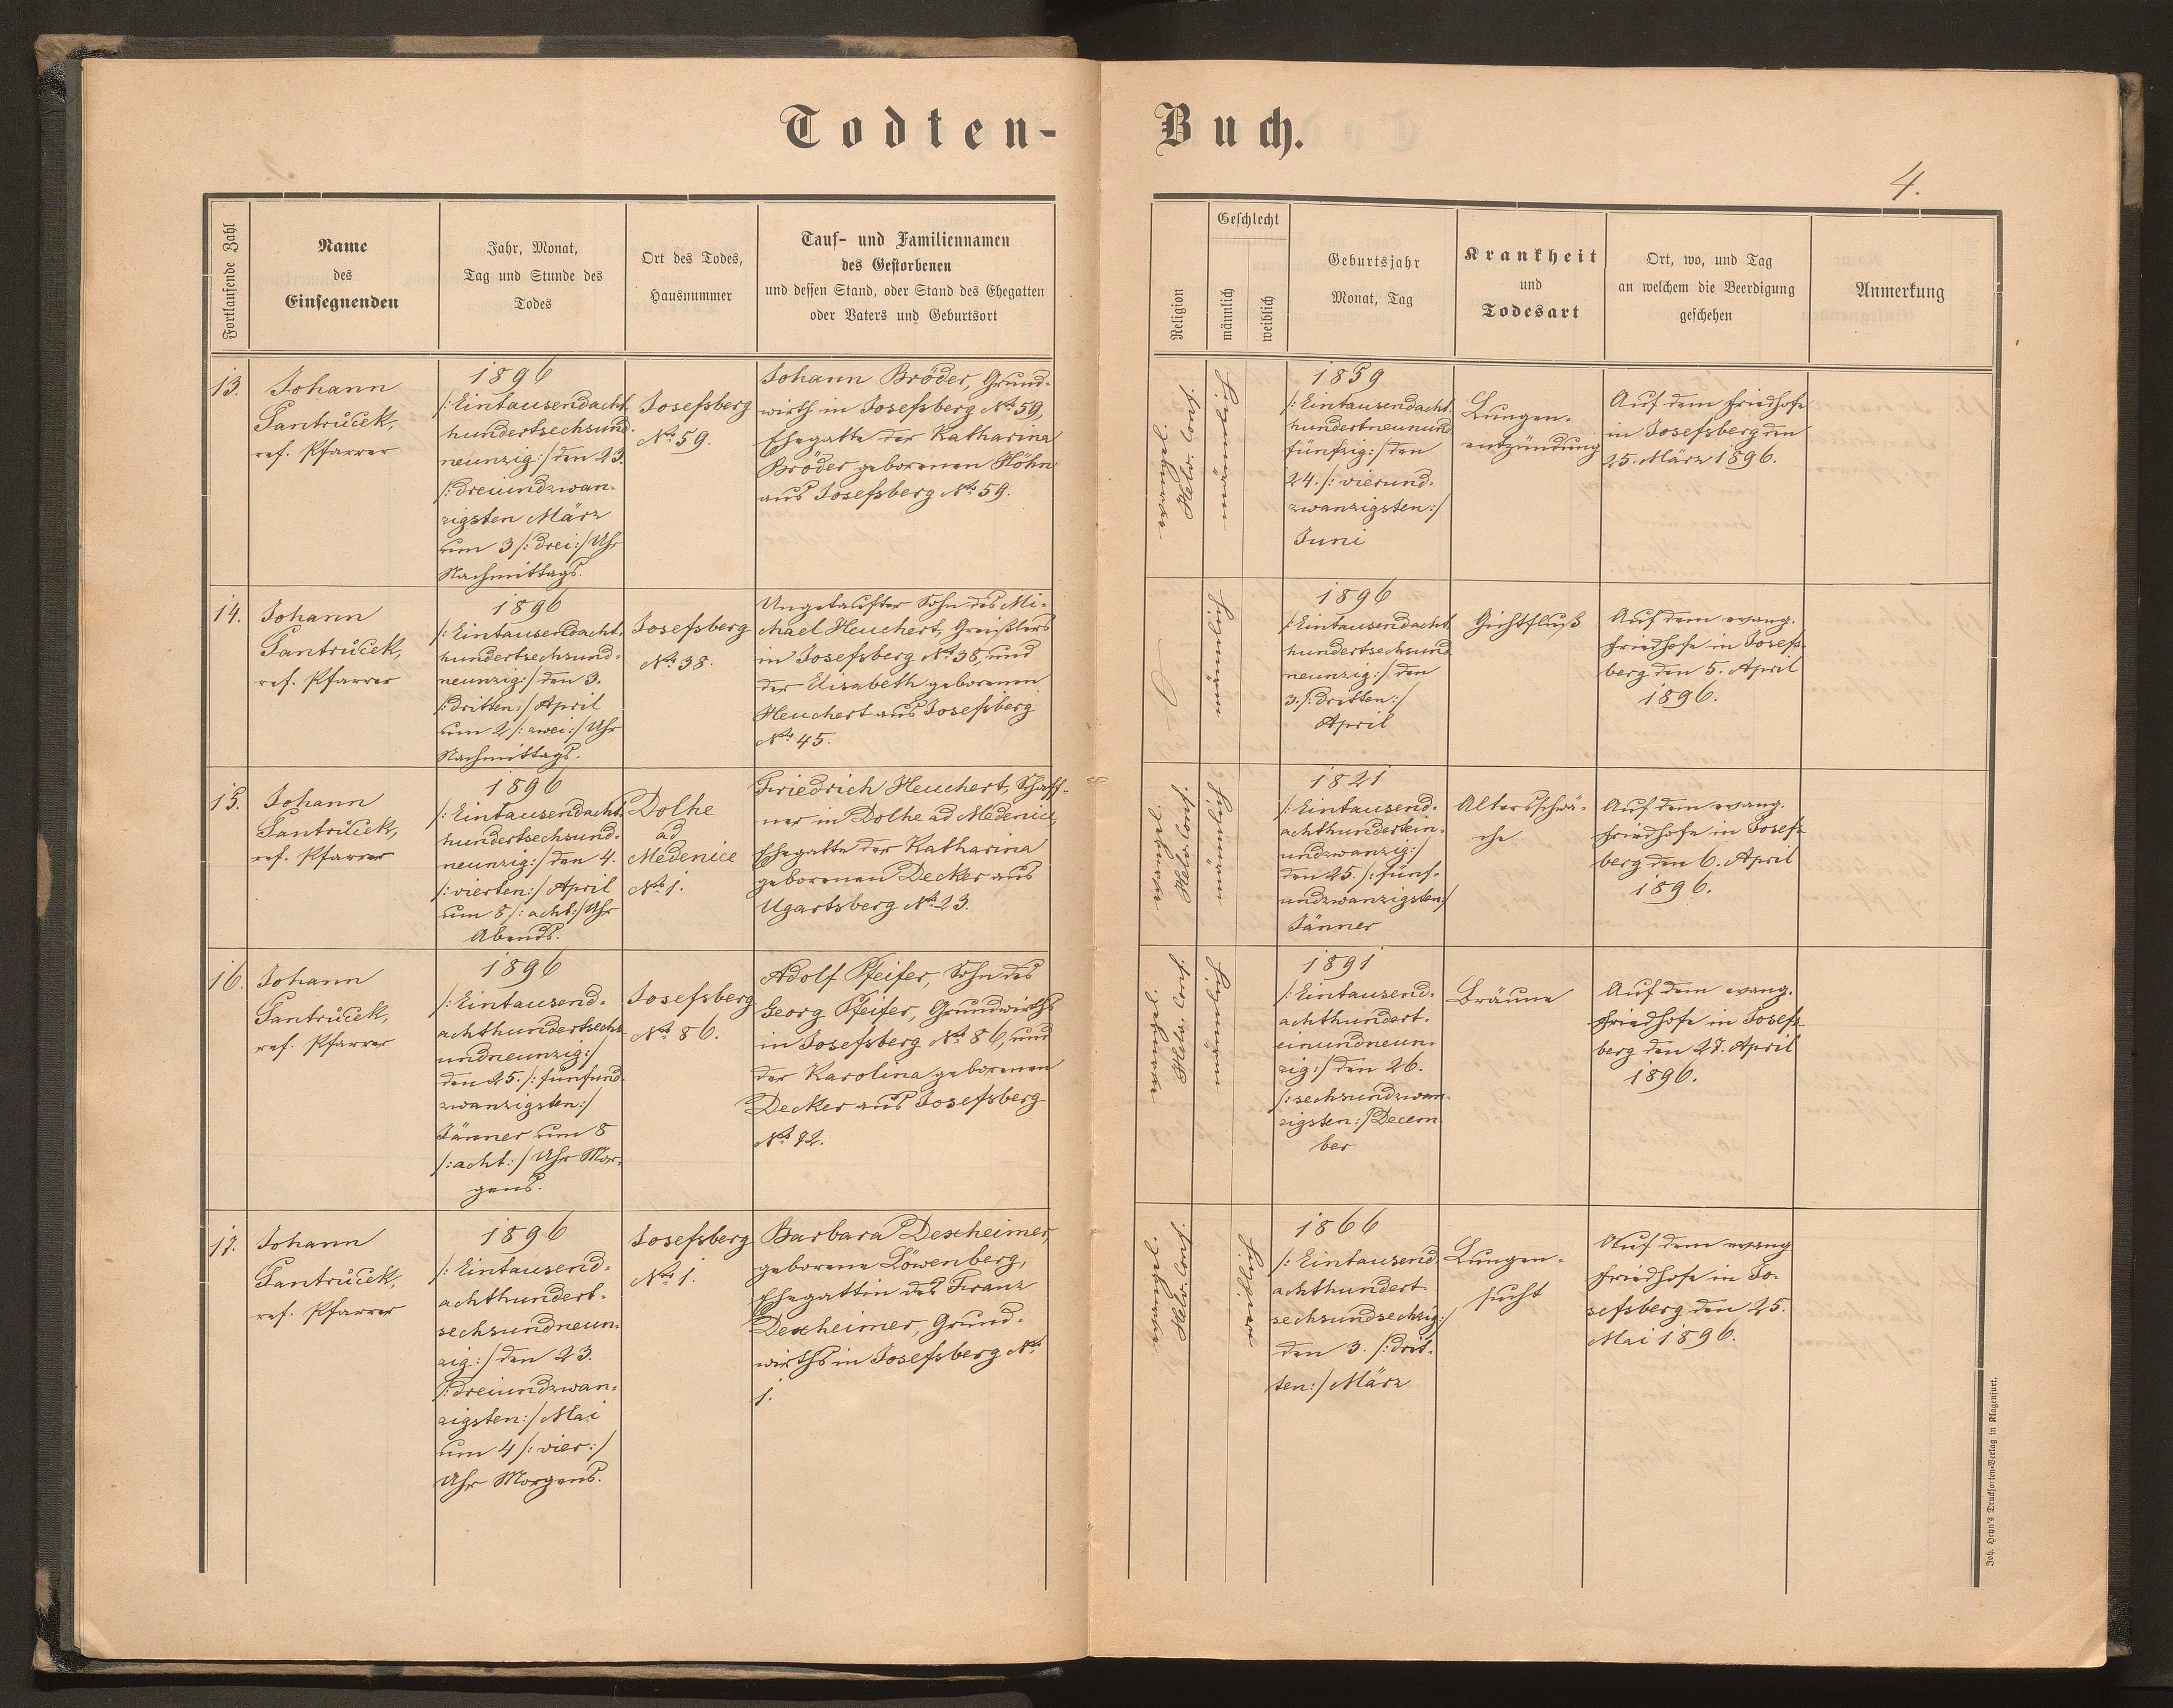 Todten-Buch.
4.
Fortlaufende Zahl
Name
des
Einsegnenden
Jahr, Monat,
Tag und Stunde des
Todes
Ort des Todes,
Hausnummer
Tauf- und Familiennamen
des Gestorbenen
und dessen Stand, oder Stand des Ehegatten
oder Vaters und Geburtsort
Religion
Geschlecht
männlich
weiblich
Geburtsjahr
Monat, Tag
Krankheit
und
Todesart
Ort, wo, und Tag
an welchem die Beerdigung
geschehen
Anmerkung
13.
Johann
Jantrůček,
ref. Pfarrer
1896
/:Eintausendacht-
hundertsechsund-
neunzig:/ den 23.
/:dreiundzwan-
zigsten März
um 3 /:drei:/ Uhr
Nachmittags.
Josefsberg
No 59.
Johann Bröder, Grund-
wirth in Josefsberg No 59,
Ehegatte der Katharina
Bröder geborenen Höhn
aus Josefsberg No 59.
evangel.
Helv. Conf.
männlich
1859
/:Eintausendacht-
hundertneunund
fünfzig:/ den
24. /:vierund-
zwanzigsten:/
Juni
Lungen-
entzündung
Auf dem Friedhofe
in Josefsberg den
25. März 1896.
14.
Johann
Jantrůček,
ref. Pfarrer
1896
/:Eintausendacht-
hundertsechsund-
neunzig:/ den 3.
/:dritten:/ April
um 2 /:zwei:/ Uhr
Nachmittags.
Josefsberg
No 38.
Ungetaufter Sohn des Mi-
chael Heuchert, Greißlers
in Josefsberg No 38, und
der Elisabeth geborenen
Heuchert aus Josefsberg
No 45.
männlich
1896
/:Eintausendacht
hundertsechsund
neunzig:/ den
3. /:dritten:/
April
Gichtfluß
Auf dem evang.
Friedhofe in Josefs-
berg den 5. April
1896.
15.
Johann
Jantrůček,
ref. Pfarrer
1896
/:Eintausendacht-
hundertsechsund-
neunzig:/ den 4.
/:vierten:/ April
um 8 /:acht:/ Uhr
Abends.
Dolhe
ad
Medenice
No 1.
Friedrich Heuchert, Schaff-
ner in Dolhe ad Medenice,
Ehegatte der Katharina
geborenen Decker aus
Ugartsberg No 23.
evangel.
Helv. Conf.
männlich
1821
/:Eintausend-
achthundertein-
undzwanzig:/
den 25. /:fünf-
undzwanzigsten:/
Jänner
Altersschwä-
che
Auf dem evang.
Friedhofe in Josefs-
berg den 6. April
1896.
16.
Johann
Jantrůček,
ref. Pfarrer
1896
/:Eintausend-
achthundertsechs-
undneunzig:/
den 25. /:fünfund-
zwanzigsten:/
Jänner um 8
/:acht:/ Uhr Mor-
gens.
Josefsberg
No 86.
Adolf Pfeifer, Sohn des
Georg Pfeifer, Grundwirths
in Josefsberg No 86, und
der Karolina geborenen
Decker aus Josefsberg
No 72.
evangel.
Helv. Conf.
männlich
1891
/:Eintausend-
achthundert-
einundneun-
zig:/ den 26.
/:sechsundzwan-
zigsten:/ Decem-
ber
Bräune
Auf dem evang.
Friedhofe in Josefs-
berg den 27. April
1896.
17.
Johann
Jantrůček,
ref. Pfarrer
1896
/:Eintausend-
achthundert-
sechsundneun-
zig:/ den 23.
/:dreiundzwan-
zigsten:/ Mai
um 4 /:vier:/
Uhr Morgens.
Josefsberg
No 1.
Barbara Dexheimer,
geborene Löwenberg,
Ehegattin des Franz
Dexheimer, Grund-
wirths in Josefsberg No
1.
evangel.
Helv. Conf.
weiblich
1866
/:Eintausend
achthundert
sechsundsechzig:/
den 3. /:drit-
ten:/ März
Lungen-
sucht
Auf dem evang.
Friedhofe in Jo-
sefsberg den 25.
Mai 1896.
Joh. Heyn's Drucksorten-Verlag in Klagenfurt.